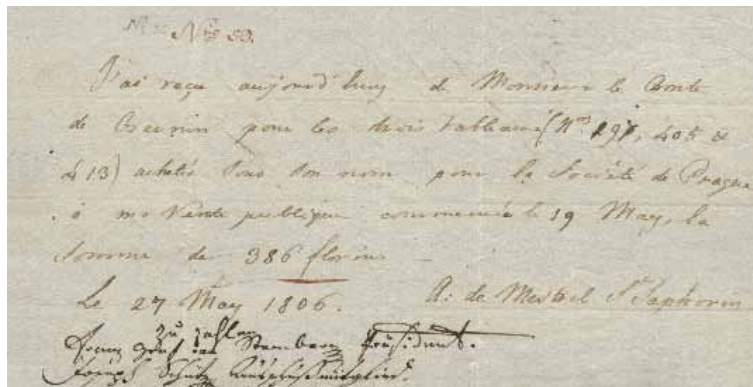 Nro 50.
J'ai reçu aujourd'huy de Monsieur le Comte
de Czernin pour les trois tableaux (Nos 297, 405 &
413) achetés sous son nom pour la Société de Prague
à ma Vente publique commencée le 19 May, la
somme de 386 florins
Le 27 May 1806. A: de Mestral St Saphorin
zu zahlen
Franz Graf Sternberg Präsident.
Joseph Ausschußmitglied.